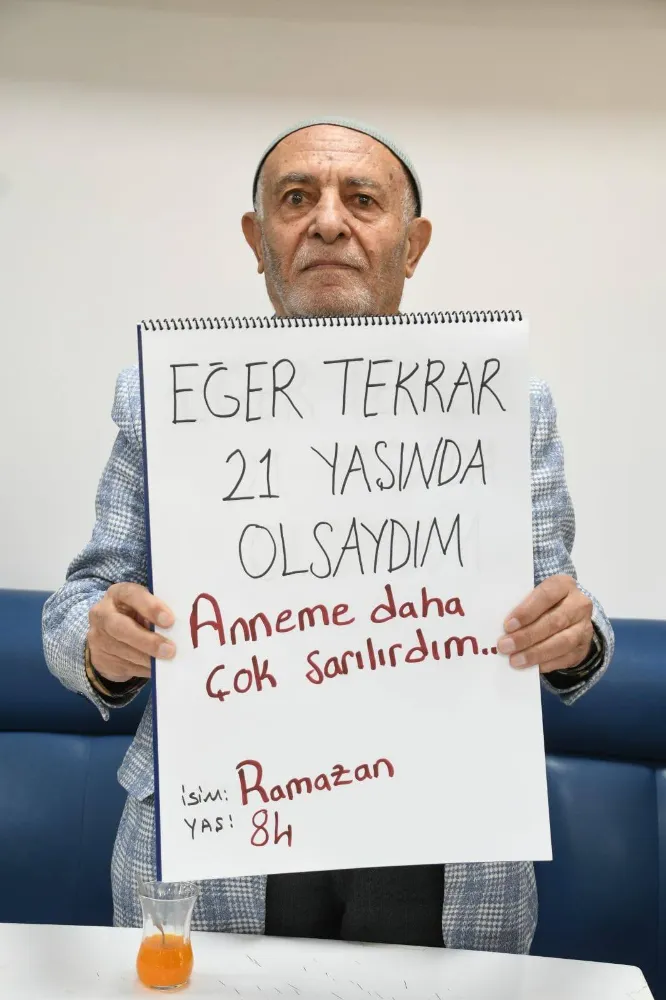 EĞER TEKRAR
21 YAŞINDA
OLSAYDIM
Anneme daha
çok sarılırdım..
isim: Ramazan
YAŞ: 84